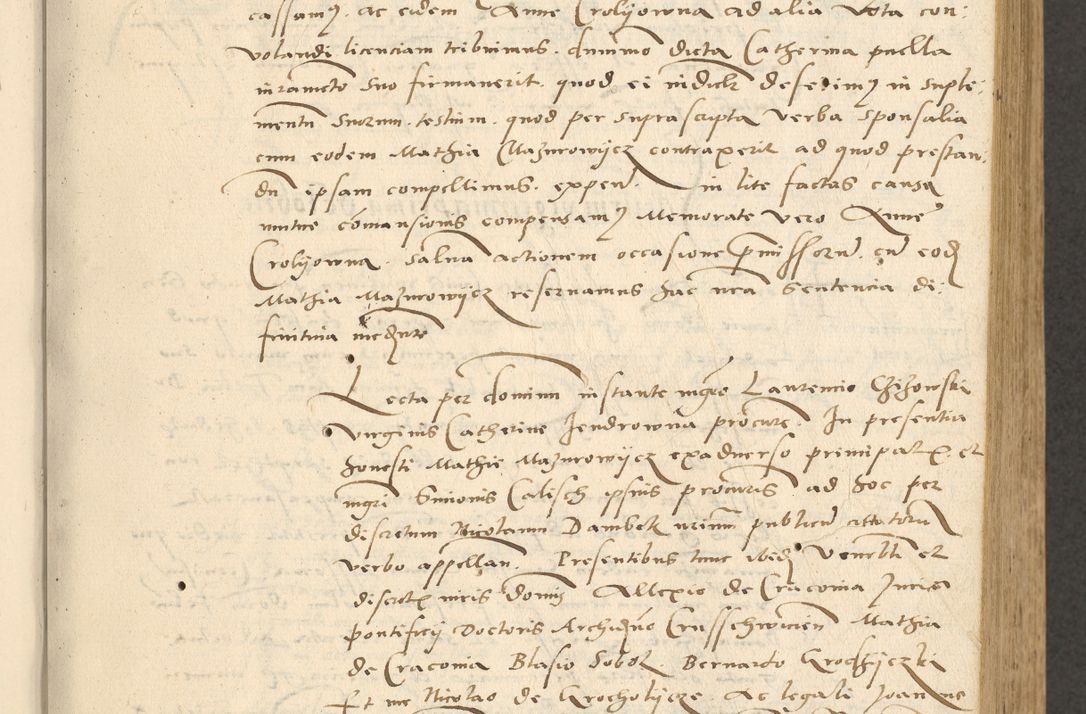 cassam9 ac eidem Anne Crolijowna ad alia vota con:
volandi licenciam tribuimus. dummo dicta Catherina puella
iurameto suo firmauerit. quod ei in Judicio deferim9 in suple:
mentu suorum testium. quod per suprascripta verba sponsalia
cum eodem Mathia Mazurowijcz contraxerit ad quod prestan:
du ipsam compellimus. expen in lite factas causa
mutue comansionis compensam9 Memorate vero Anne
Crolijowna. salua actionem occasione pmissoru. cu eod
Mathia Mazurowijcz reseruamus hac nra Sentencia di:
finitiua mediante
Lecta per dominum instante mgro Laurencio Chizowski
virginis Catherine Jendrowna procure. In presentia
honesti Mathie Mazurowijcz exaduerso principal et
mgri Simonis Calisch ipsius procuris ad hoc per
discretum Nicolaum Dambek nrium publicu
verbo appellan. Presentibus tunc ibid venebli et
discret viris domis Allexio de Cracouia Juris
pontificij Doctoris Mathia
de Cracouia Blasio Sobol. Bernardo
Et me Nicolao de Grocholijcze. Ac legali Joanne